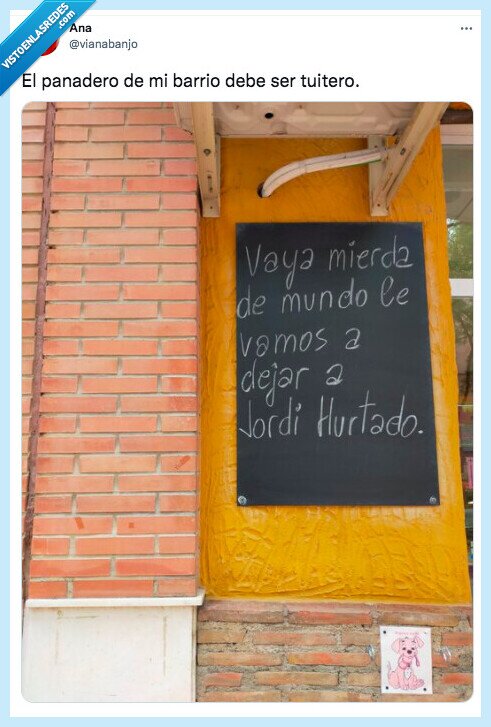 VISTOENLASREDES
.com
Ana
@vianabanjo
El panadero de mi barrio debe ser tuitero.
Vaya mierda
de mundo le
vamos a
dejar a
Jordi Hurtado.